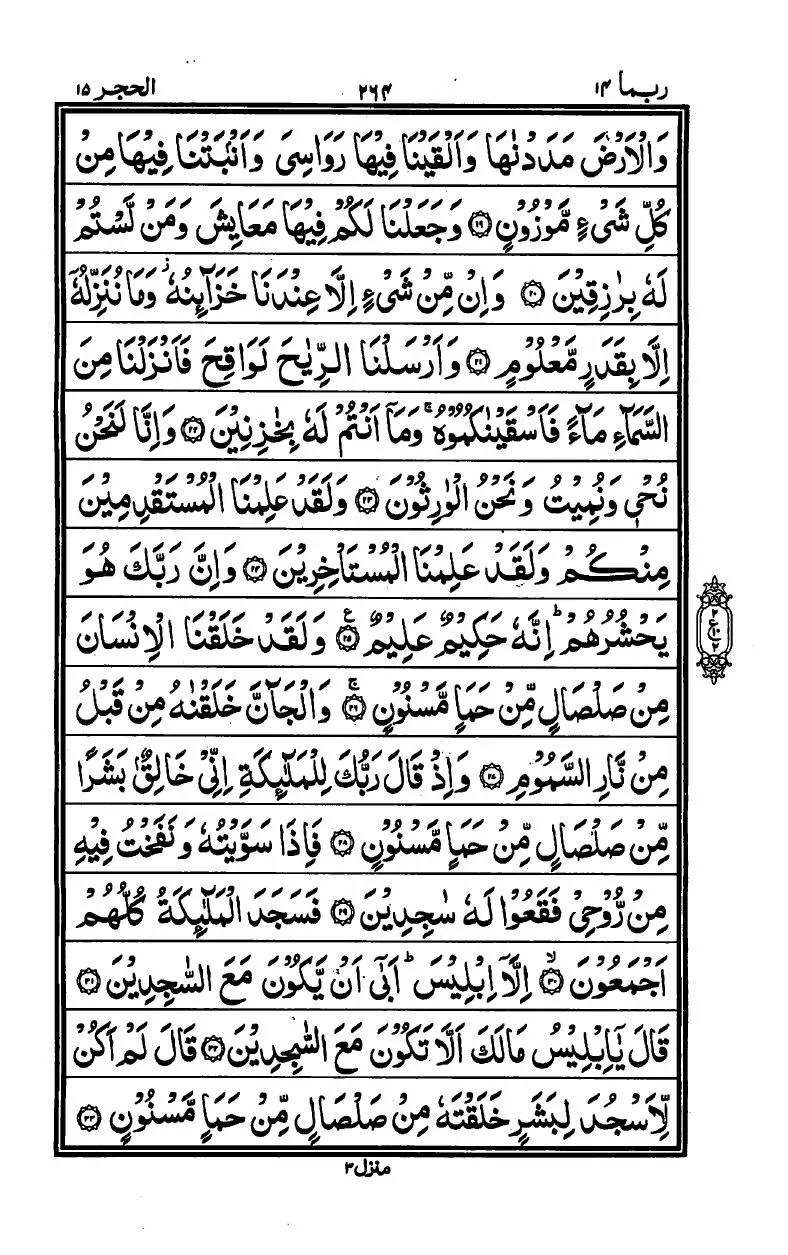 ربما ١٤ ٢٦٤ الحجر ١٥
وَالْاَرْضَ مَدَدْنٰهَا وَاَلْقَيْنَا فِيْهَا رَوَاسِىَ وَاَنْۢبَتْنَا فِيْهَا مِنْ
كُلِّ شَىْءٍ مَّوْزُوْنٍ ۝١٩ وَجَعَلْنَا لَكُمْ فِيْهَا مَعَايِشَ وَمَنْ لَّسْتُمْ
لَهٗ بِرٰزِقِيْنَ ۝٢٠ وَاِنْ مِّنْ شَىْءٍ اِلَّا عِنْدَنَا خَزَآئِنُهٗ ؗ وَمَا نُنَزِّلُهٗۤ
اِلَّا بِقَدَرٍ مَّعْلُوْمٍ ۝٢١ وَاَرْسَلْنَا الرِّيٰحَ لَوَاقِحَ فَاَنْزَلْنَا مِنَ
السَّمَآءِ مَآءً فَاَسْقَيْنٰكُمُوْهُ ۚ وَمَاۤ اَنْتُمْ لَهٗ بِخٰزِنِيْنَ ۝٢٢ وَاِنَّا لَنَحْنُ
نُحْىٖ وَنُمِيْتُ وَنَحْنُ الْوٰرِثُوْنَ ۝٢٣ وَلَقَدْ عَلِمْنَا الْمُسْتَقْدِمِيْنَ
مِنْكُمْ وَلَقَدْ عَلِمْنَا الْمُسْتَاْخِرِيْنَ ۝٢٤ وَاِنَّ رَبَّكَ هُوَ
يَحْشُرُهُمْ ؕ اِنَّهٗ حَكِيْمٌ عَلِيْمٌ ۝٢٥ ع وَلَقَدْ خَلَقْنَا الْاِنْسَانَ
مِنْ صَلْصَالٍ مِّنْ حَمَاٍ مَّسْنُوْنٍ ۝٢٦ ۚ وَالْجَآنَّ خَلَقْنٰهُ مِنْ قَبْلُ
مِنْ نَّارِ السَّمُوْمِ ۝٢٧ وَاِذْ قَالَ رَبُّكَ لِلْمَلٰٓئِكَةِ اِنِّىْ خَالِقٌۢ بَشَرًا
مِّنْ صَلْصَالٍ مِّنْ حَمَاٍ مَّسْنُوْنٍ ۝٢٨ فَاِذَا سَوَّيْتُهٗ وَنَفَخْتُ فِيْهِ
مِنْ رُّوْحِىْ فَقَعُوْا لَهٗ سٰجِدِيْنَ ۝٢٩ فَسَجَدَ الْمَلٰٓئِكَةُ كُلُّهُمْ
اَجْمَعُوْنَ ۝٣٠ ۙ اِلَّاۤ اِبْلِيْسَ ؕ اَبٰۤى اَنْ يَّكُوْنَ مَعَ السّٰجِدِيْنَ ۝٣١
قَالَ يٰۤاِبْلِيْسُ مَالَكَ اَلَّا تَكُوْنَ مَعَ السّٰجِدِيْنَ ۝٣٢ قَالَ لَمْ اَكُنْ
لِّاَسْجُدَ لِبَشَرٍ خَلَقْتَهٗ مِنْ صَلْصَالٍ مِّنْ حَمَاٍ مَّسْنُوْنٍ ۝٣٣
٢
ع ١٠
٢
منزل ٣